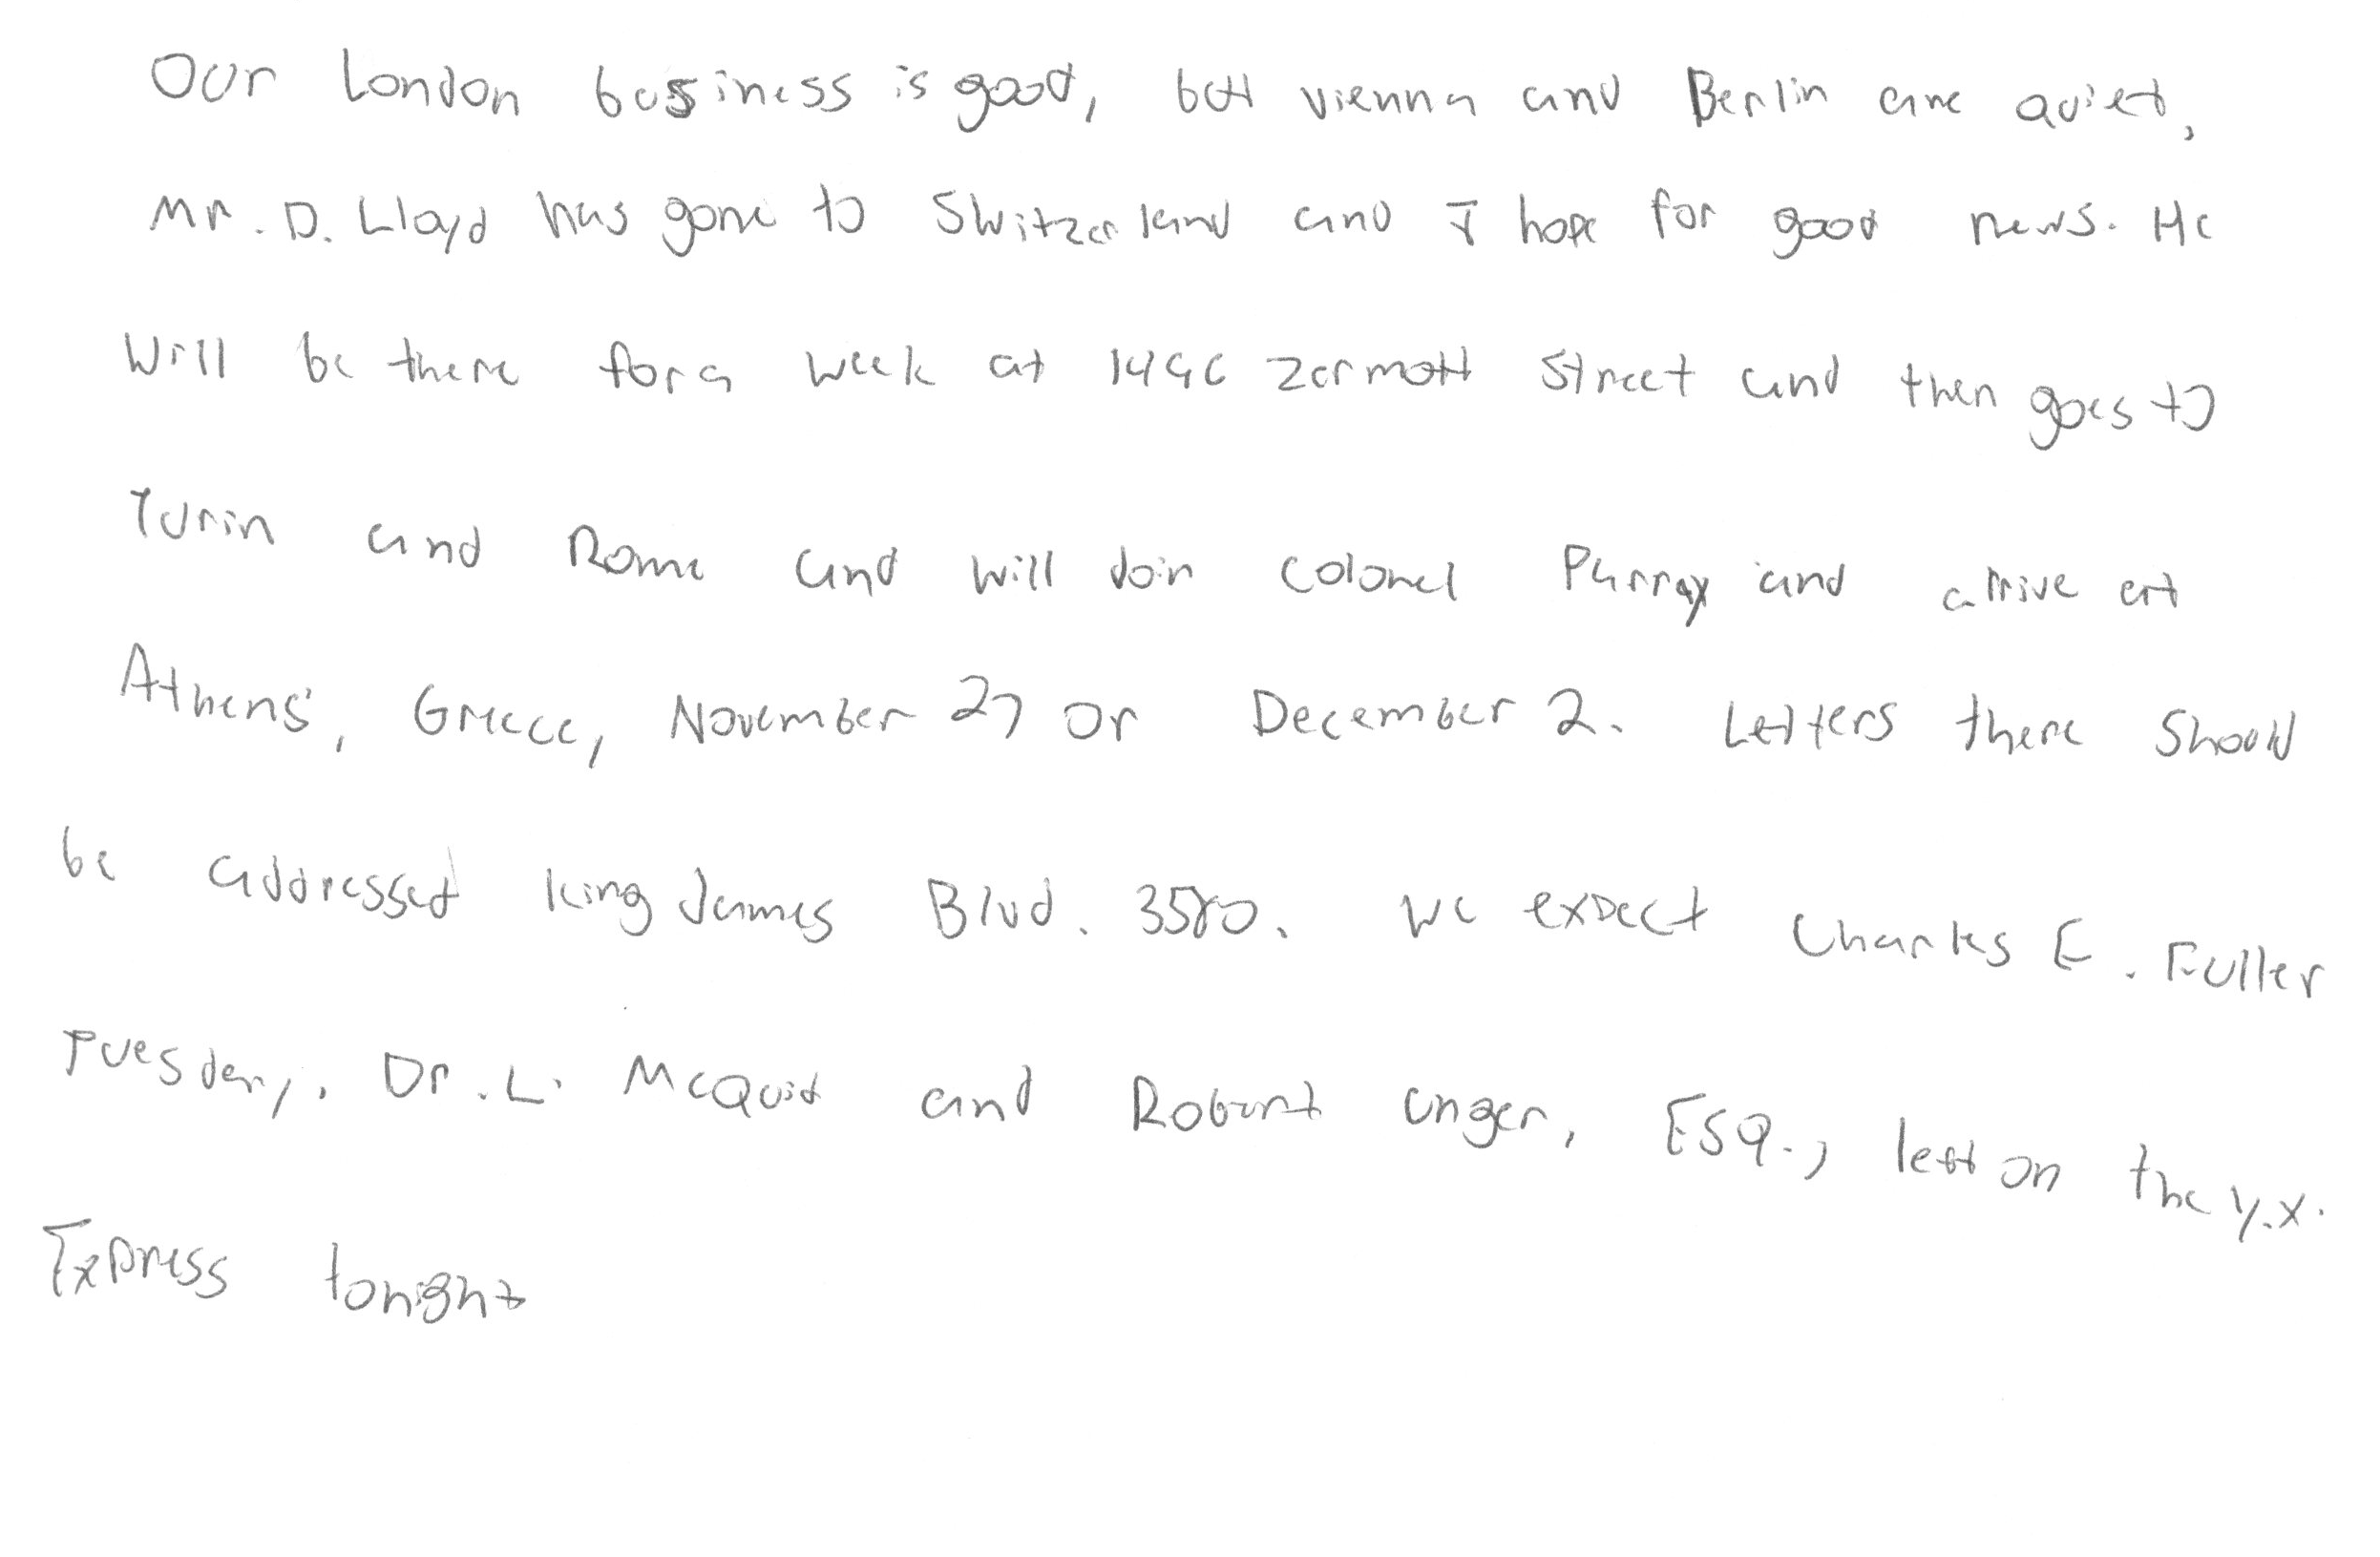 Our London business is good, but Vienna and Berlin are quiet,
Mr. D. Lloyd has gone to Switzerland and I hope for good news. He
Will be there for a week at 1496 Zermott Street and then goes to
Turin and Rome and will Join Colonel Parray and arrive at
Athens, Greece, November 27 or December 2. Letters there Should
be addressed King James Blvd. 3580. We expect Charles E. Fuller
Tuesday. Dr. L. McQuid and Robert unger, ESQ., left on the Y.X.
Express tonight